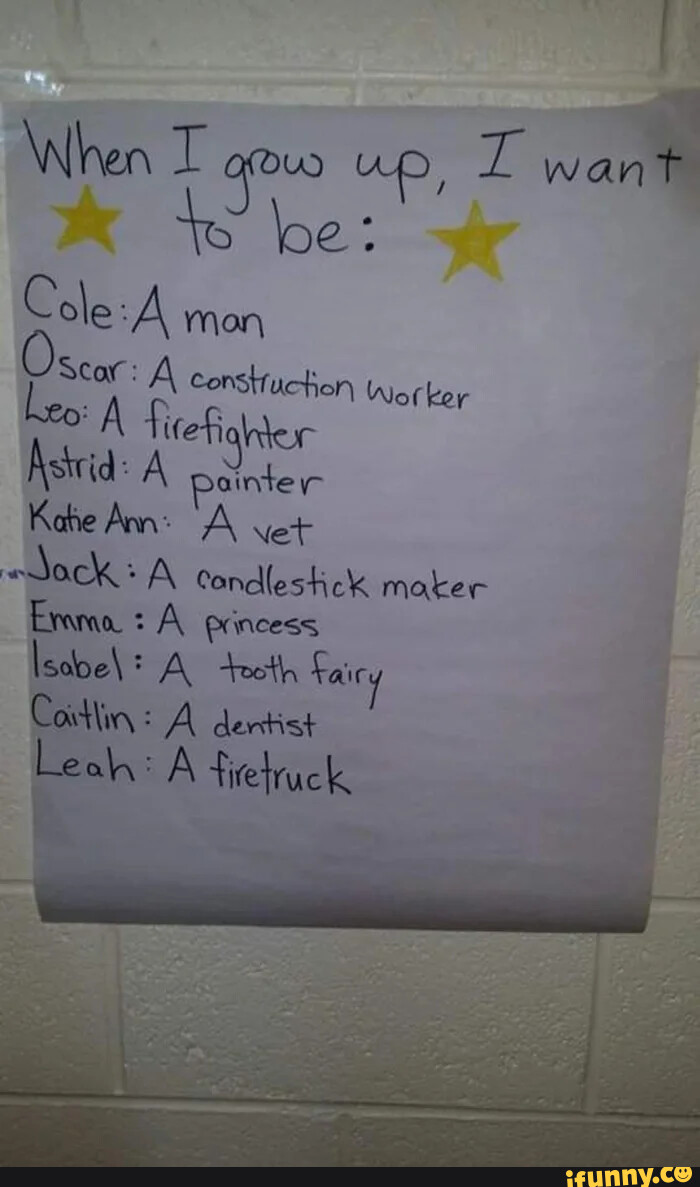 When I grow up, I want
to be:
Cole: A man
Oscar: A construction worker
Leo: A firefighter
Astrid: A painter
Katie Ann: A vet
Jack: A candlestick maker
Emma: A princess
Isabel: A tooth fairy
Caitlin: A dentist
Leah: A firetruck
ifunny.co